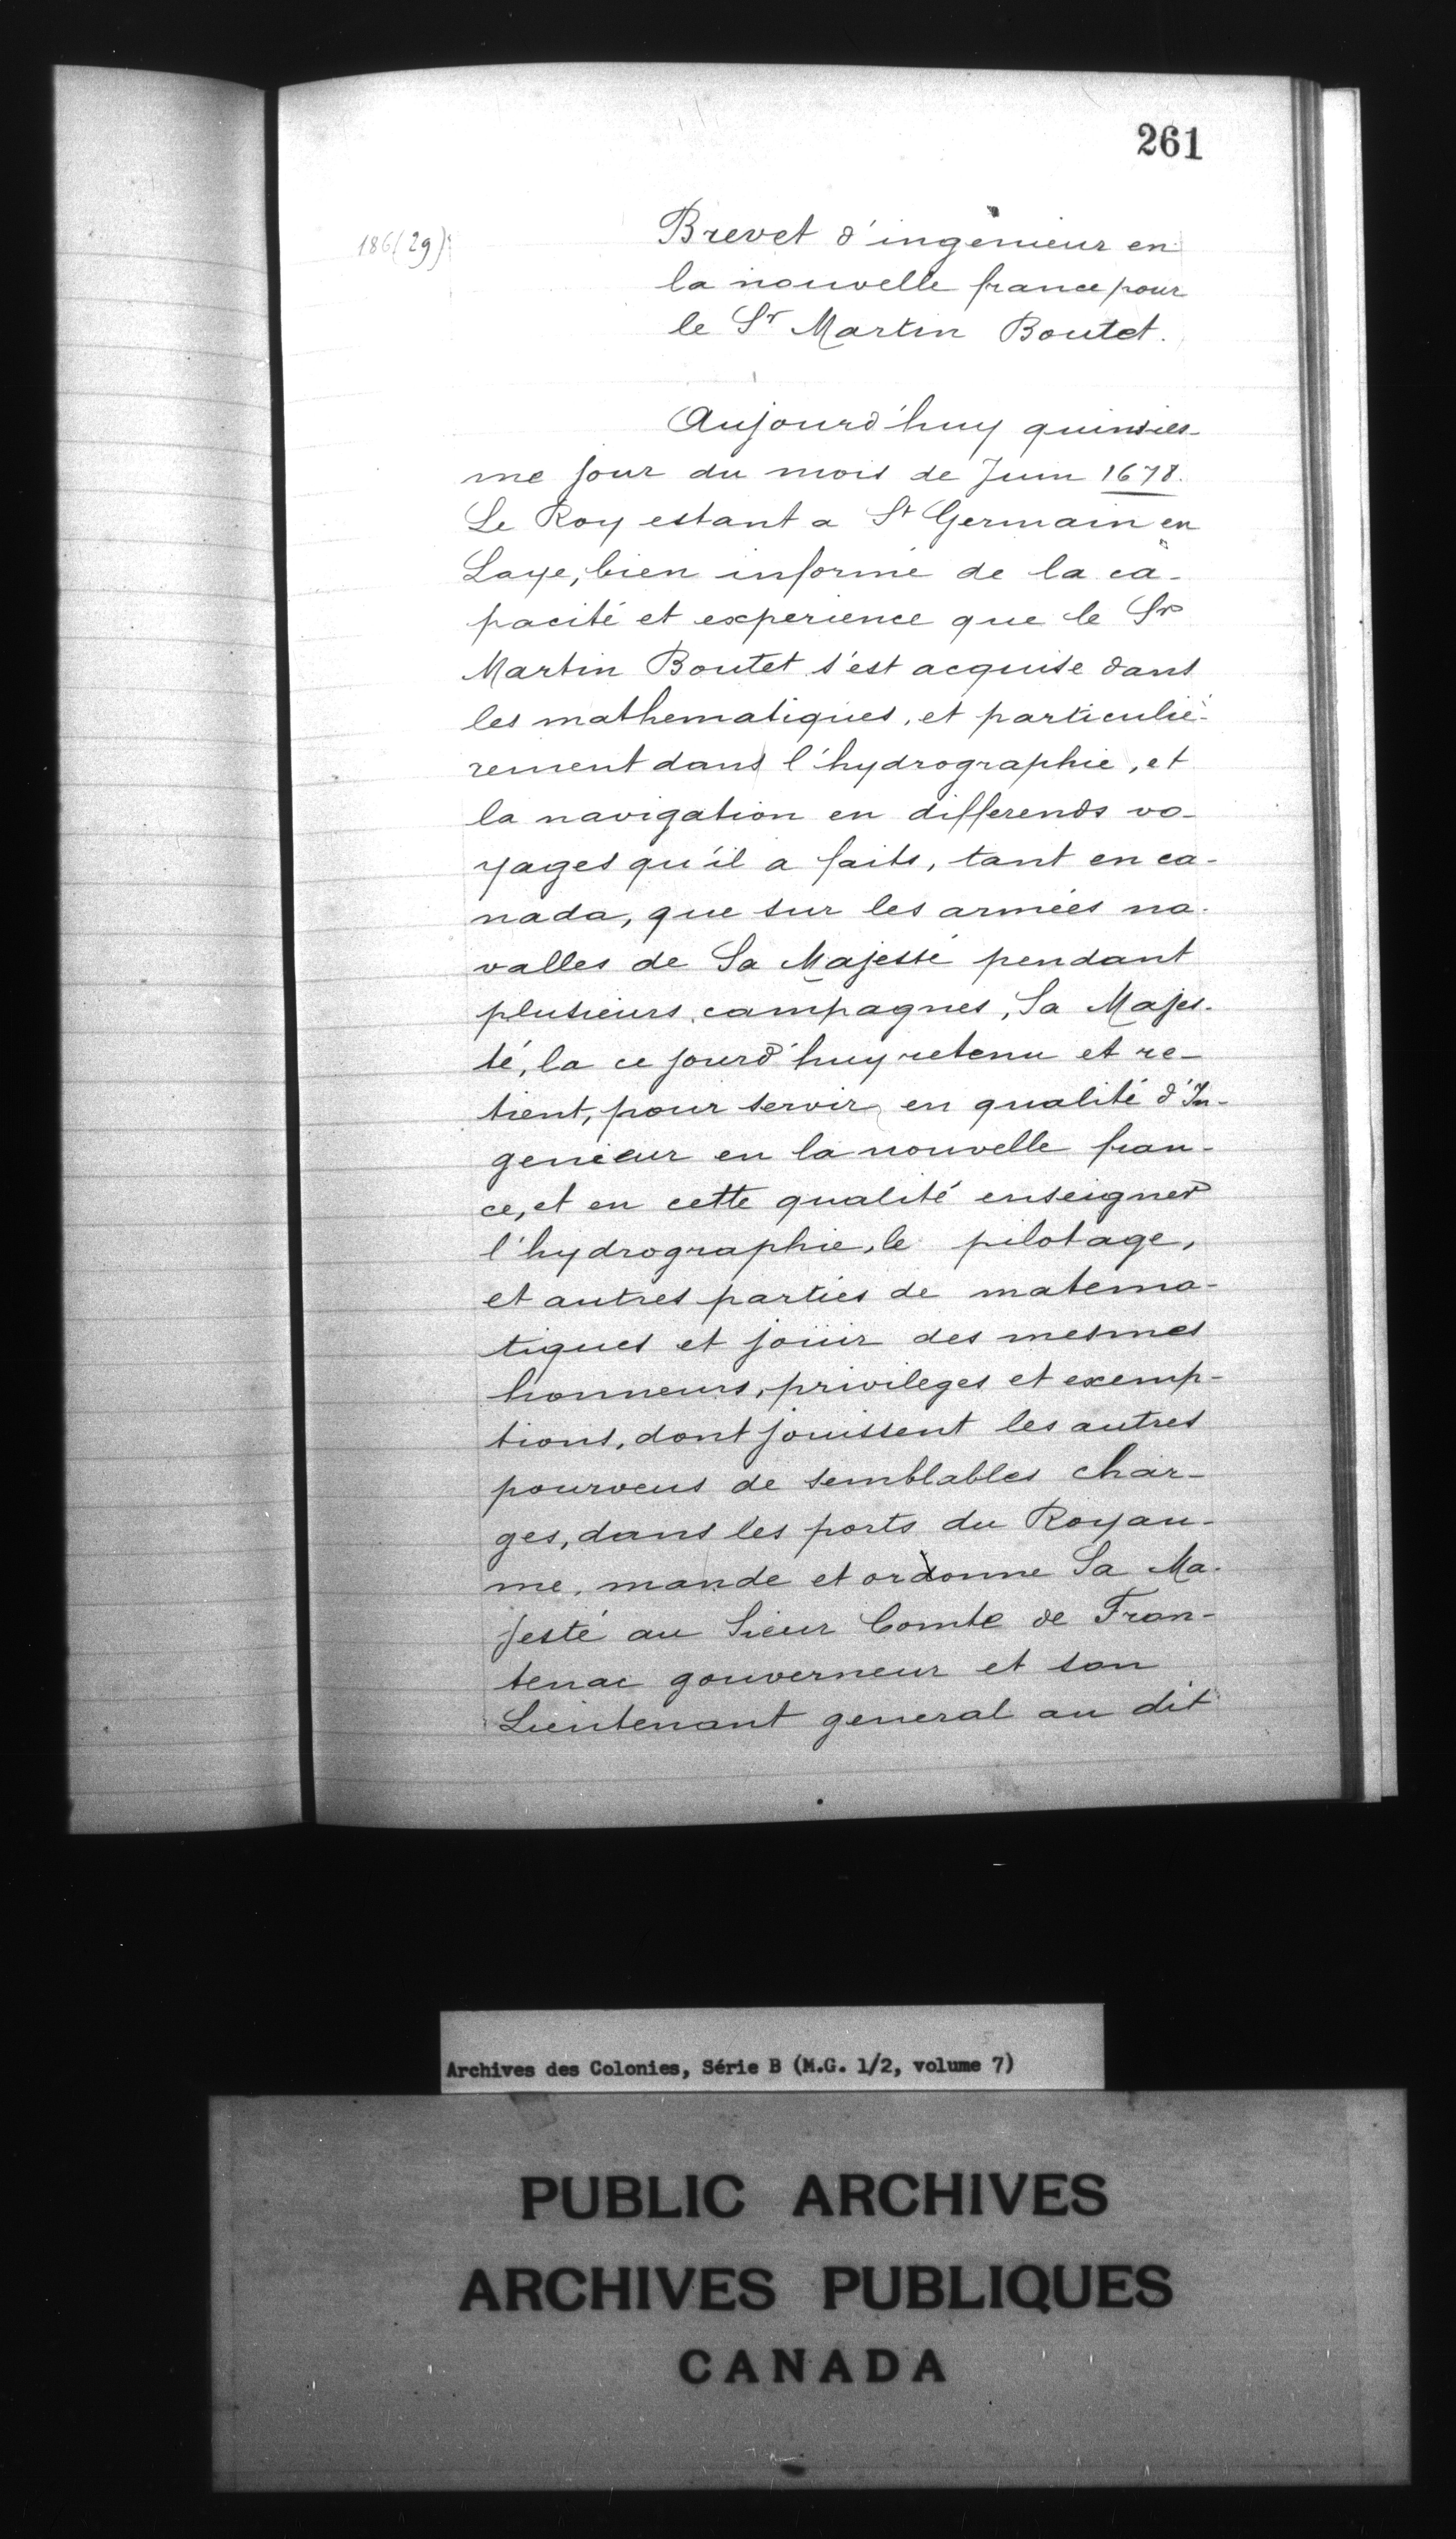 261
186(29)
Brevet d'ingénieur en
la nouvelle france pour
le Sr Martin Boutet.
Aujourd'huy quinsies-
me jour du mois de Juin 1678.
Le Roy estant a St Germain en
Laye, bien informé de la ca-
pacité et experience que le Sr
Martin Boutet s'est acquise dans
les mathematiques, et particulié-
rement dans l'hydrographie, et
la navigation en differends vo-
yages qu'il a faits, tant en ca-
nada, que sur les armées na-
valles de Sa Majesté pendant
plusieurs campagnes, Sa Majes-
té, la ce jourd'huy retenu et re-
tient, pour servir en qualité d'In-
genieur en la nouvelle fran-
ce, et en cette qualité enseigner
l'hydrographie, le pilotage,
et autres parties de matema-
tiques et joüir des mesmes
honneurs, privileges et exemp-
tions, dont jouissent les autres
pourveus de semblables char-
ges, dans les ports du Royau-
me, mande et ordonne Sa Ma-
jesté au Sieur Comte de Fron-
tenac gouverneur et son
Lieutenant general au dit
Archives des Colonies, Série B (M.G. 1/2, volume 7)
5
PUBLIC ARCHIVES
ARCHIVES PUBLIQUES
CANADA